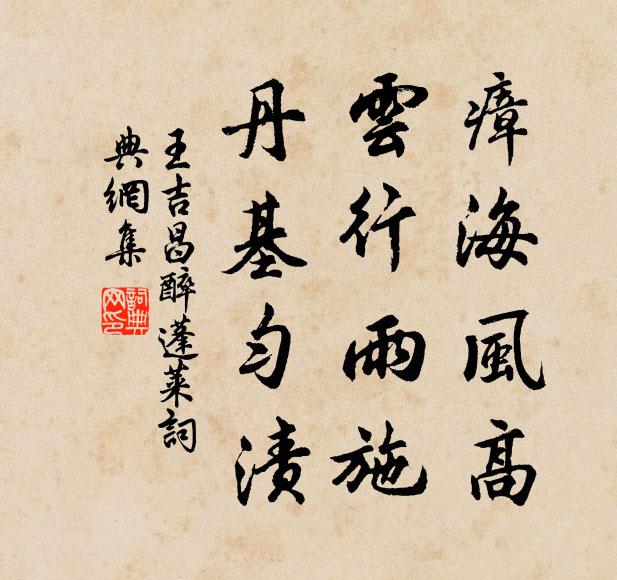 瘴海風高
雲行雨施
丹基匀漬
王吉昌醉蓬莱詞
典網集
詞典网印